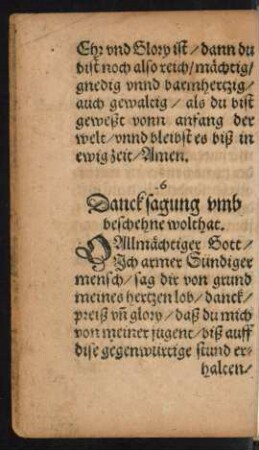 Ehr vnd Glory ist / dann du
bist noch also reich / mächtig /
gnedig vnnd barmhertzig /
auch gewaltig / als du bist
geweßt vonn anfang der
welt / vnnd bleibst es biß in
ewig zeit / Amen.
6
Dancksagung vmb
beschehne wolthat.
O Allmächtiger Gott /
Ich armer Sündiger
mensch / sag dir von grund
meines hertzen lob / danck /
preiß vñ glory / daß du mich
von meiner jugent / biß auff
dise gegenwürtige stund er-
halten /